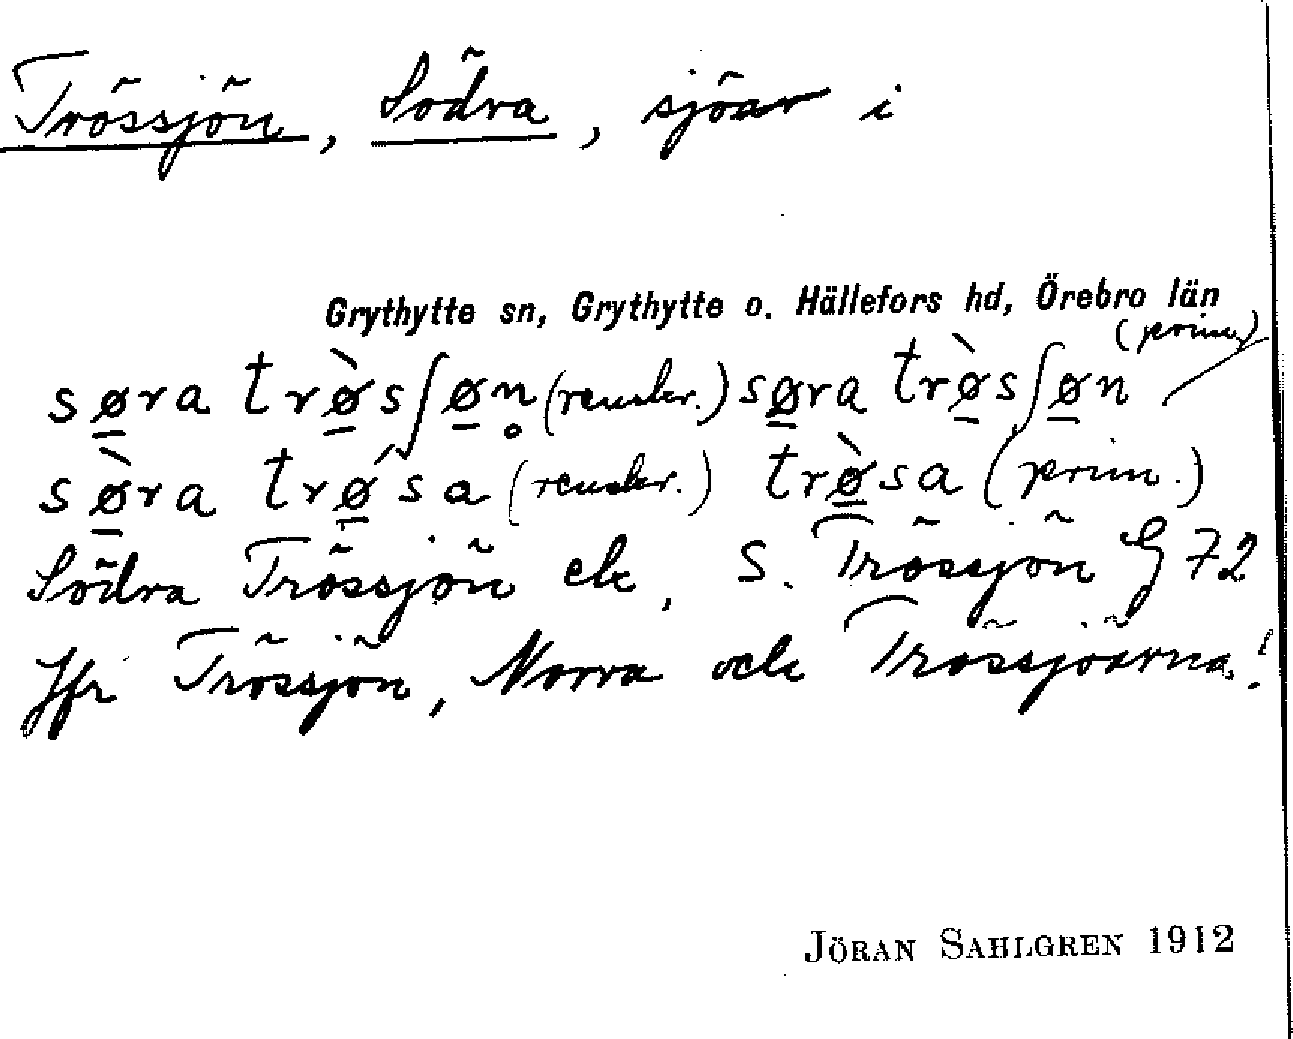 Trössjön, Södra, sjöar i
Grythytte sn, Grythytte o. Hällefors hd, Örebro län
(prim.)
sø̱ra trø̱̀sʃø̱n̥ (renskr.) sø̱ra trø̱̀sʃø̱n
sø̱̀ra trǿ̱sa (renskr.) trø̱̀sa (prim.)
Södra Trössjön ek, S. Trössjön G 72
Jfr Trössjön, Norra och Trössjöarna!
JÖRAN SAHLGREN 1912